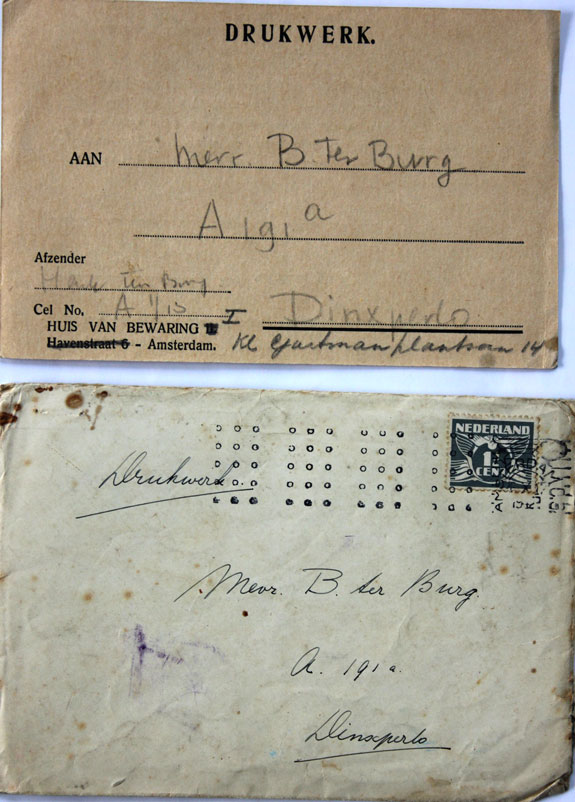 DRUKWERK.
AAN Mevr. B. Ter Burg
A 191 a
Afzender
Ter Burg
Cel No. A 1/15
Dinxperlo
HUIS VAN BEWARING I
Havenstraat 6 - Amsterdam. Kl Gartmanplantsoen 14
NEDERLAND
1½
CENT
Drukwerk.
Mevr. B. ter Burg.
A. 191a.
Dinxperlo